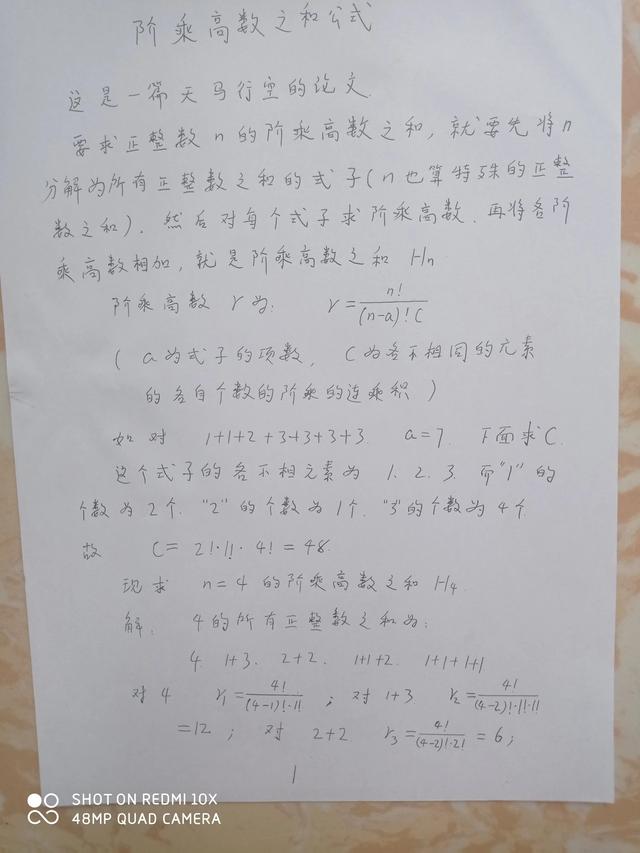 阶乘高数之和公式
这是一篇天马行空的论文.
要求正整数n的阶乘高数之和, 就要先将n
分解为所有正整数之和的式子(n也算特殊的正整
数之和). 然后对每个式子求阶乘高数. 再将各阶
乘高数相加, 就是阶乘高数之和 Hn
阶乘高数 r 为: r = n!/((n-a)!C)
( a为式子的项数, C为各不相同的元素
的各自个数的阶乘的连乘积 )
如对 1+1+2+3+3+3+3. a=7. 下面求C.
这个式子的各不相元素为 1. 2. 3. 而"1"的
个数为2个. "2"的个数为1个. "3"的个数为4个.
故 C= 2!·1!·4! = 48.
现求 n=4 的阶乘高数之和 H4.
解: 4的所有正整数之和为:
4. 1+3. 2+2. 1+1+2. 1+1+1+1
对4 r1=4!/((4-1)!·1!) ; 对1+3 r2=4!/((4-2)!·1!·1!)
=12 ; 对 2+2 r3=4!/((4-2)!·2!) = 6;
1
SHOT ON REDMI 10X
48MP QUAD CAMERA